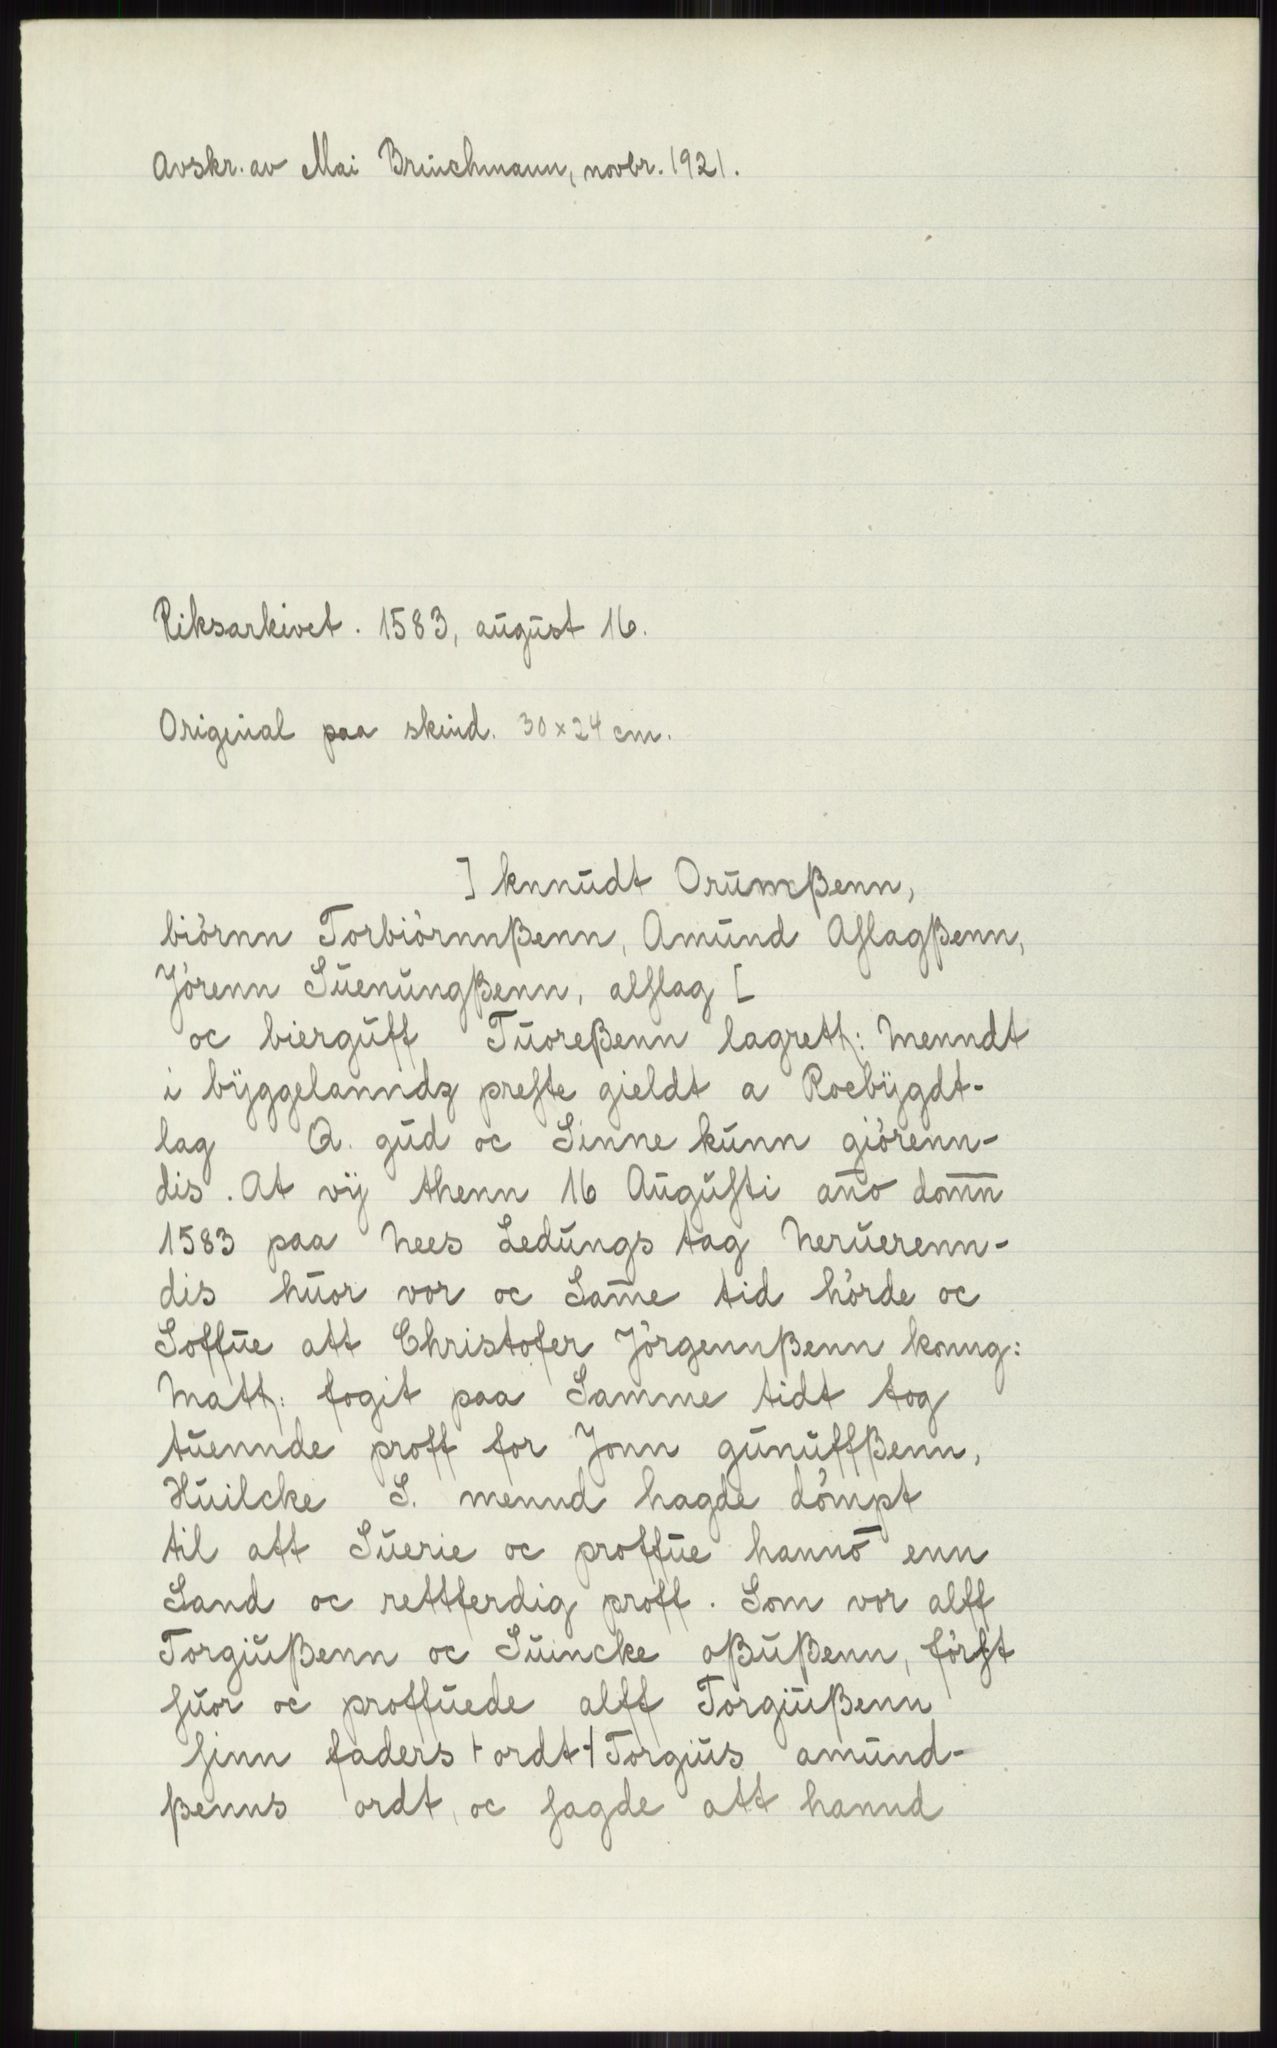 Avskr. av Mai Bruchmann, novbr. 1921.
Riksarkivet. 1583, august 16.
Original paa skind. 30 x 24 cm.
] knnudt Orumßenn,
biörnn Torbiörnnßenn, Amund Aslagßenn,
Jörenn Suenungßenn, alslag [
oc bierguff Tuoreßenn lagrett: Menndt
i byggelanndz preste gieldt a Roebygdt-
lag A. gud oc Sinne kunn giörenn-
dis. At vij thenn 16 Augusti año dom̅n
1583 paa Nees Ledungs tag Neruerenn-
dis huor vor oc Sam̅e tid hörde oc
Soffue att Christofer Jörgennßenn konng:
Matt: fogit paa Samme tidt tog
tuennde proff for Jonn gunuffßenn,
Huilcke S. mennd hagde dömpt
til att Suerie oc proffue hannō enn
Sand oc rettferdig proff. Som vor alff
Torgiußenn oc Suincke oßußenn, först
suor oc proffuede alff Torgiußenn
sinn faders ⊦ ordt ⊣ Torgius amund-
ßenns ordt, oc sagde att hannd